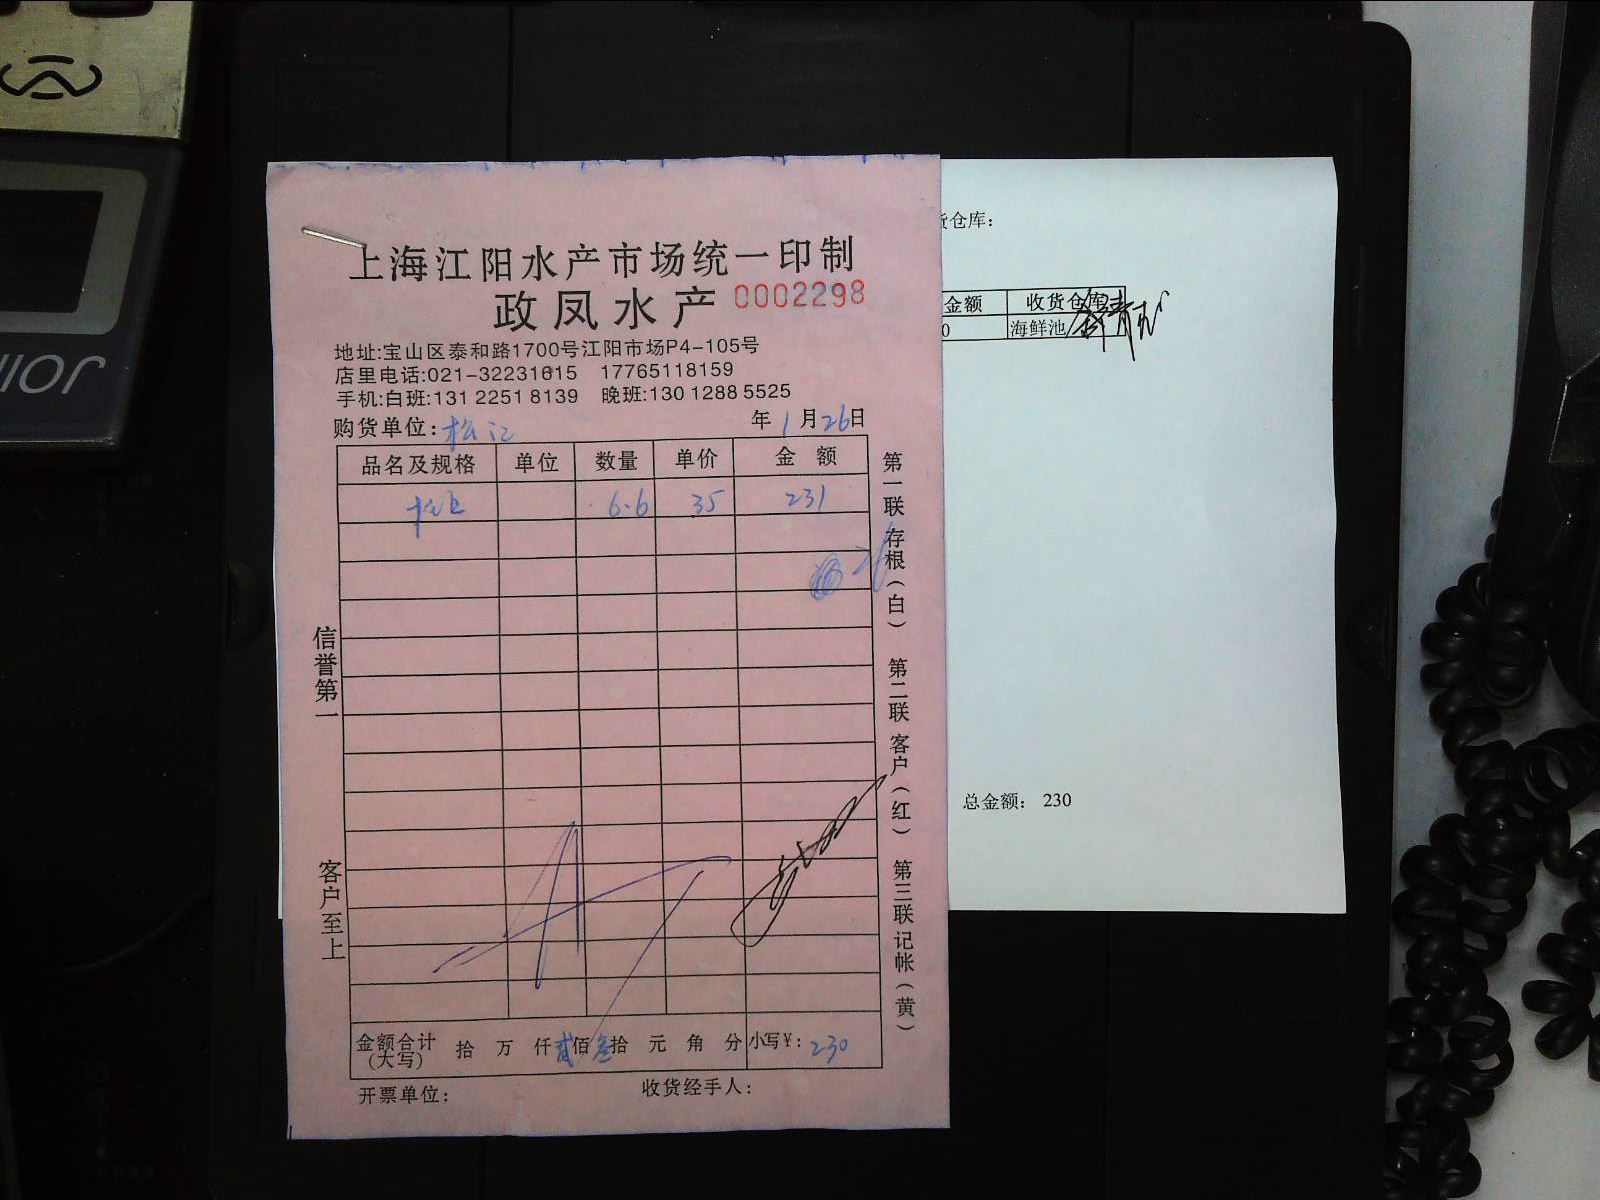 上海江阳水产市场统一印制
政凤水产 0002298
地址:宝山区泰和路1700号江阳市场P4-105号
店里电话:021-32231615 17765118159
手机:白班:131 2251 8139 晚班:130 1288 5525
购货单位:松江 年1月26日
品名及规格 单位 数量 单价 金额
6.6 35 231
信誉第一
客户至上
第一联存根(白) 第二联客户(红) 第三联记帐(黄)
金额合计(大写) 拾 万 仟 贰佰 叁拾 元 角 分 小写¥: 230
开票单位: 收货经手人:
货仓库:
金额 收货仓库
0 海鲜池
总金额: 230
JOINIOR